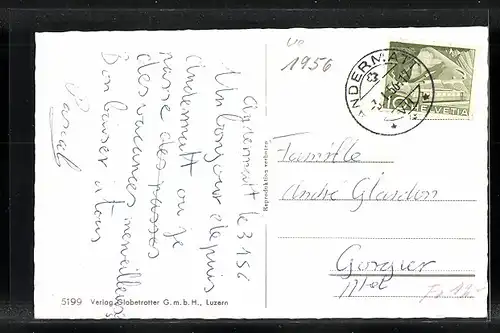 Andermatt le 3 1 56
Un bonjour depuis
Andermatt ou je
passe des passes
des vacances merveilleuses
Bon baiser à tous
Pascal
5199 Verlag Globetrotter G. m. b. H., Luzern
Reproduktion verboten
vo
1956
ANDERMATT
HELVETIA
Famille
André Glardon
Gorgier
Ntel